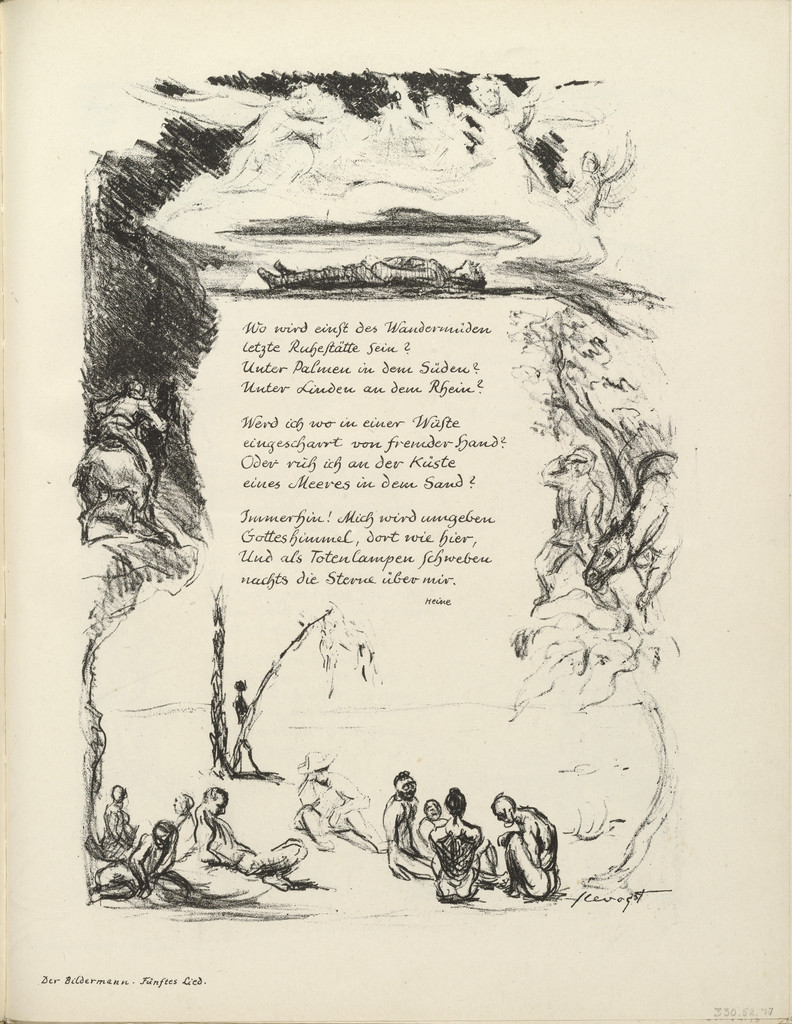 Wo wird einst des Wandermüden
letzte Ruhestätte sein?
Unter Palmen in dem Süden?
Unter Linden an dem Rhein?
Werd ich wo in einer Wüste
eingescharrt von fremder Hand?
Oder ruh ich an der Küste
eines Meeres in dem Sand?
Immerhin! Mich wird umgeben
Gotteshimmel, dort wie hier,
Und als Totenlampen schweben
nachts die Sterne über mir.
Heine
Slevogt
Der Bildermann. Fünftes Lied.